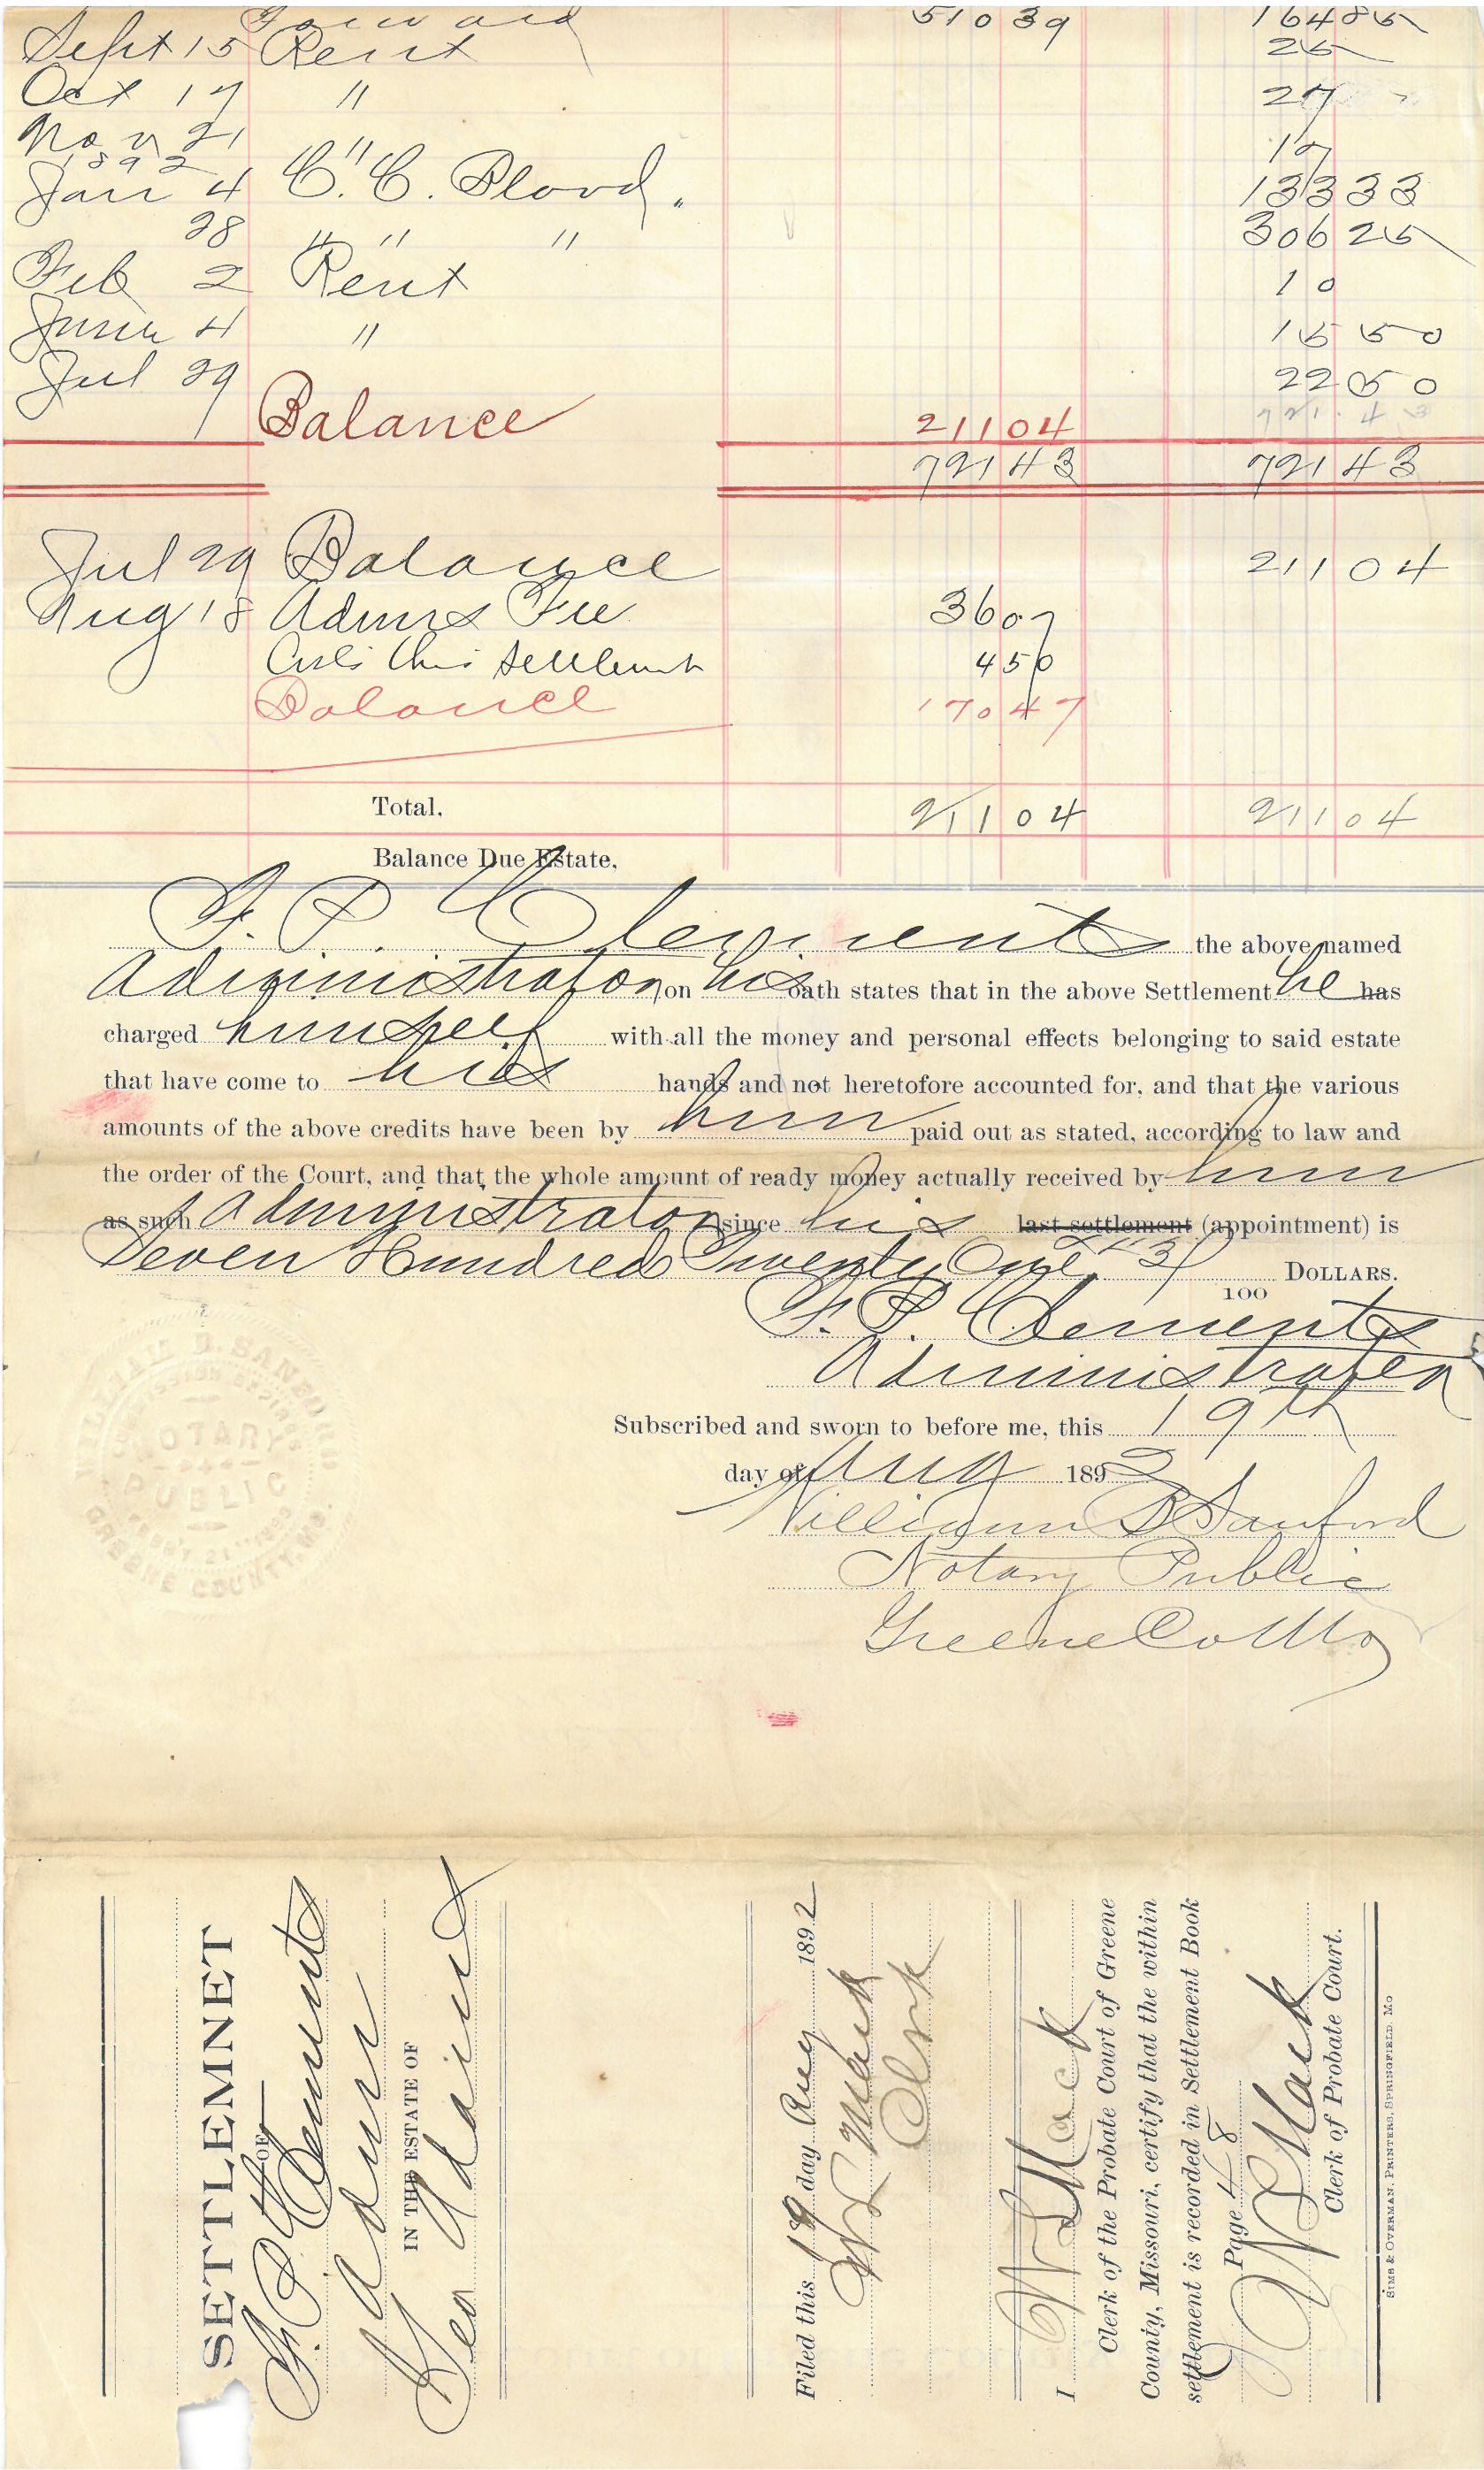 Forward 510 39 164 85
Sept 15 Rent 25
Oct 17 " 27
Nov 21 " 17
1892
Jan 4 C. C. Blood. 133 33
28 " " " 306 25
Feb 2 Rent 10
June 4 " 15 50
Jul 29 22 50
Balance 211 04 721.43
721 43 721 43
Jul 29 Balance 211 04
Aug 18 Admrs Fee 36 07
Costs this settlement 4 50
Balance 170 47
Total. 211 04 211 04
Balance Due Estate.
F. P. Clements the above named
Administrator, on his oath states that in the above Settlement he has
charged himself with all the money and personal effects belonging to said estate
that have come to his hands and not heretofore accounted for, and that the various
amounts of the above credits have been by him paid out as stated, according to law and
the order of the Court, and that the whole amount of ready money actually received by him
as such Administrator since his last settlement (appointment) is
Seven Hundred Twenty One 43/100 DOLLARS.
F. P. Clements
Administrator
Subscribed and sworn to before me, this 19th
day of Aug 1892
William B Sanford
Notary Public
Greene Co Mo
WILLIAM B SANFORD
NOTARY
PUBLIC
GREENE COUNTY, MO.
SETTLEMNET
OF
F. P. Clements
Admr
IN THE ESTATE OF
Geo
Filed this 19 day Aug 1892
W L Mack
Clerk
I W L Mack
Clerk of the Probate Court of Greene
County, Missouri, certify that the within
settlement is recorded in Settlement Book
Page 48
W L Mack
Clerk of Probate Court.
SIMS & OVERMAN, PRINTERS, SPRINGFIELD, MO